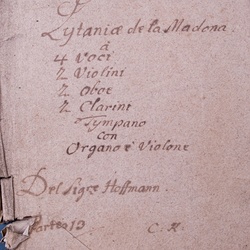 Lytaniæ de la Madona
á
4 Voci
2 Violini
2 Oboe
2 Clarini
Tympano
con
Organo è Violone
Del Sigre Hoffmann.
Partes 13 C. K.